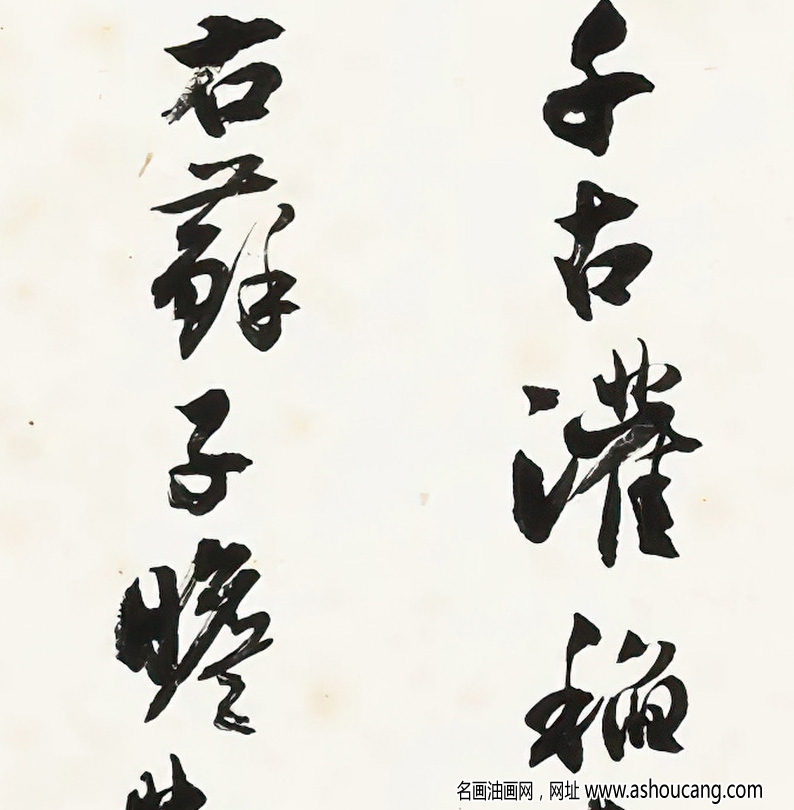 千古灌稻
右蘇子瞻
名画油画网，网址 www.ashoucang.com